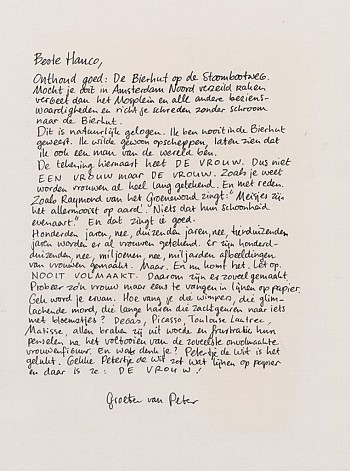 Beste Hanco,
Onthoud goed: De Bierhut op de Stoombootweg.
Mocht je ooit in Amsterdam Noord verzeild raken
vergeet dan het Mosplein en alle andere beziens-
waardigheden en richt je schreden zonder schroom
naar de Bierhut.
Dit is natuurlijk gelogen. Ik ben nooit in de Bierhut
geweest. Ik wilde gewoon opscheppen, laten zien dat
ik ook een man van de wereld ben.
De tekening hiernaast heet DE VROUW. Dus niet
EEN VROUW maar DE VROUW. Zoals je weet
worden vrouwen al heel lang getekend. En met reden.
Zoals Raymond van het Groenewoud zingt: "Meisjes zijn
het allermooist op aard'. Niets dat hun schoonheid
evenaart." En dat zingt ie goed.
Honderden jaren, nee, duizenden jaren, nee, tienduizenden
jaren worden er al vrouwen getekend. Er zijn honderd-
duizenden, nee, miljoenen, nee, miljarden afbeeldingen
van vrouwen gemaakt. Maar. En nu komt het. Let op.
NOOIT VOLMAAKT. Daarom zijn er zoveel gemaakt.
Probeer zo'n vrouw maar eens te vangen in lijnen op papier.
Gek word je ervan. Hoe vang je die wimpers, die glim-
lachende mond, die lange haren die zacht geuren naar iets
met bloemetjes? Degas, Picasso, Toulouse Lautrec,
Matisse, allen braken zij uit woede en frustratie hun
penselen na het voltooien van de zoveelste onvolmaakte
vrouwenfiguur. En wat denk je? Petertje de Wit is het
gelukt. Gekke Petertje de Wit zet wat lijnen op papier
en daar is ze: DE VROUW!
Groeten van Peter